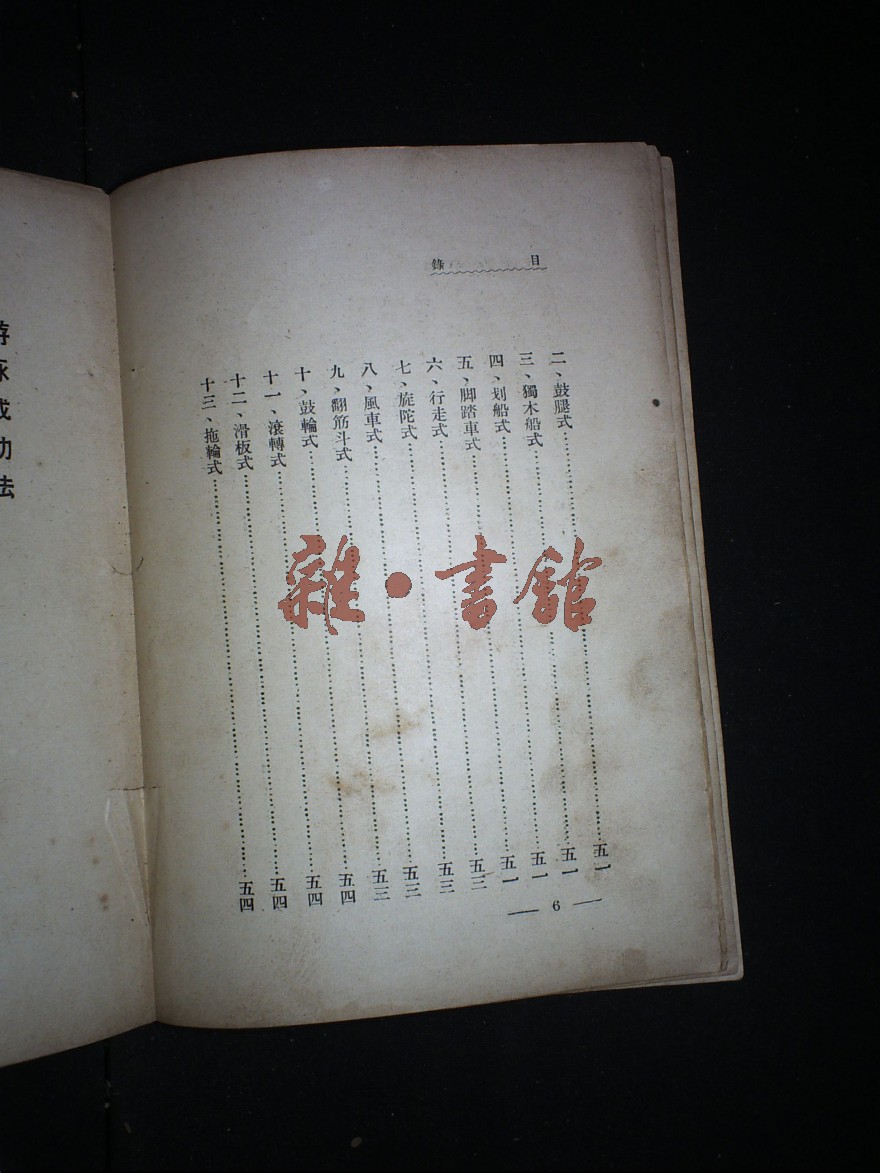 目錄
二、鼓腿式……五一
三、獨木船式……五一
四、划船式……五一
五、脚踏車式……五一
六、行走式……五三
七、旋陀式……五三
八、風車式……五三
九、翻筋斗式……五三
十、鼓輪式……五四
十一、滾轉式……五四
十二、滑板式……五四
十三、拖輪式……五四
6
游泳成功法
雜·書館